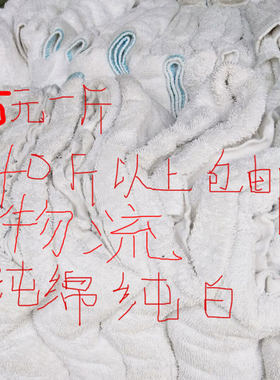 5元一斤
40斤以上包邮
物流
纯绵纯白